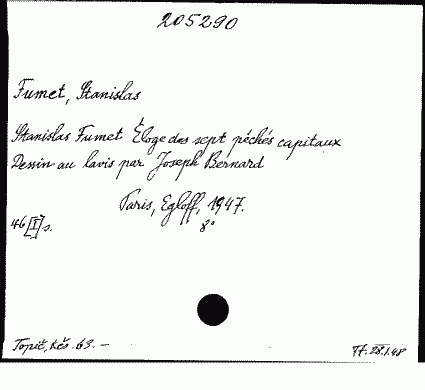 205290
Fumet, Stanislas
Stanislas Fumet Éloge des sept péchés capitaux
Dessin au lavis par Joseph Bernard
Paris, Egloff, 1947.
46 [I] s. 8°
Topič, Kčs. 63.— 28.1.48